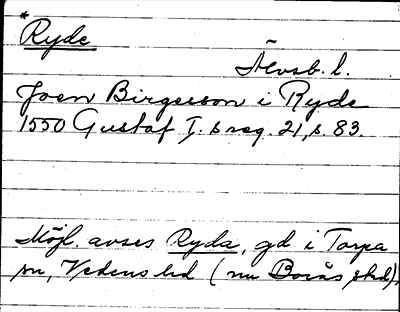 *
Ryde
Älvsb. l.
Joen Birgerson i Ryde
1550 Gustaf I:s reg. 21, s. 83.
Möjl. avses Ryda, gd i Torpa
sn, Vedens hd (nu Borås stad).